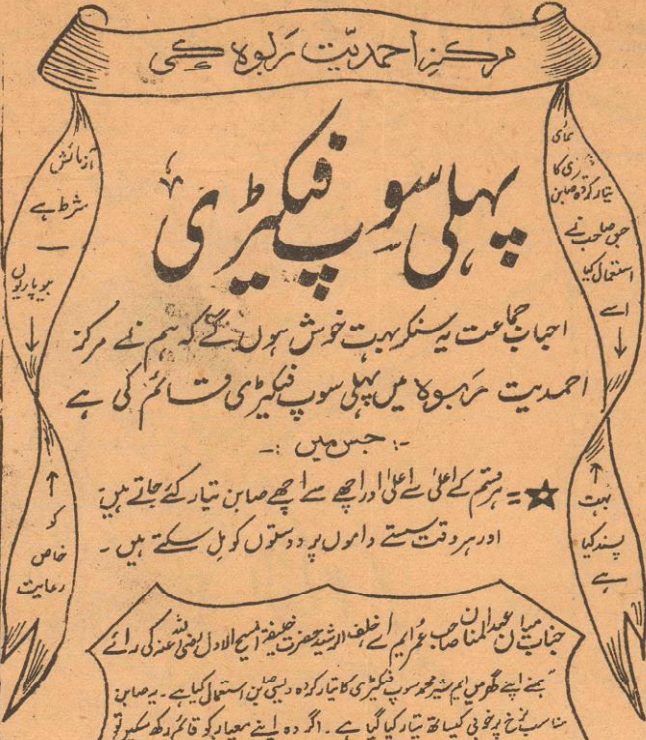 مرکزِ احمدیّت ربوہ کی
پہلی سوپ فیکٹری
احبابِ جماعت یہ سنکر بہت خوش ہوں گے کہ ہم نے مرکز
احمدیت ربوہ میں پہلی سوپ فیکٹری قائم کی ہے
-: جس میں :-
= ہر قسم کے اعلیٰ سے اعلیٰ اور اچھے سے اچھے صابن تیار کئے جاتے ہیں
اور ہر وقت سستے داموں پر دوستوں کو مل سکتے ہیں۔
ہماری
فیکٹری کا
تیار کردہ صابن
جس صاحب نے
استعمال کیا
اسے
بہت
پسند کیا
ہے
آزمائش
شرط ہے
بیوپاریوں
کو
خاص
رعایت
جناب میاں عبدالمنان صاحب عمر ایم اے خلف الرشید حضرت خلیفۃ المسیح الاول رضی اللہ عنہ کی رائے
ہمنے اپنے گھر میں ایم بشیر محمد سوپ فیکٹری کا تیار کردہ دیسی صابن استعمال کیا ہے۔ یہ صابن
مناسب نرخ پر خوبی کیساتھ تیار کیا گیا ہے۔ اگر وہ اپنے معیار کو قائم رکھ سکیں تو